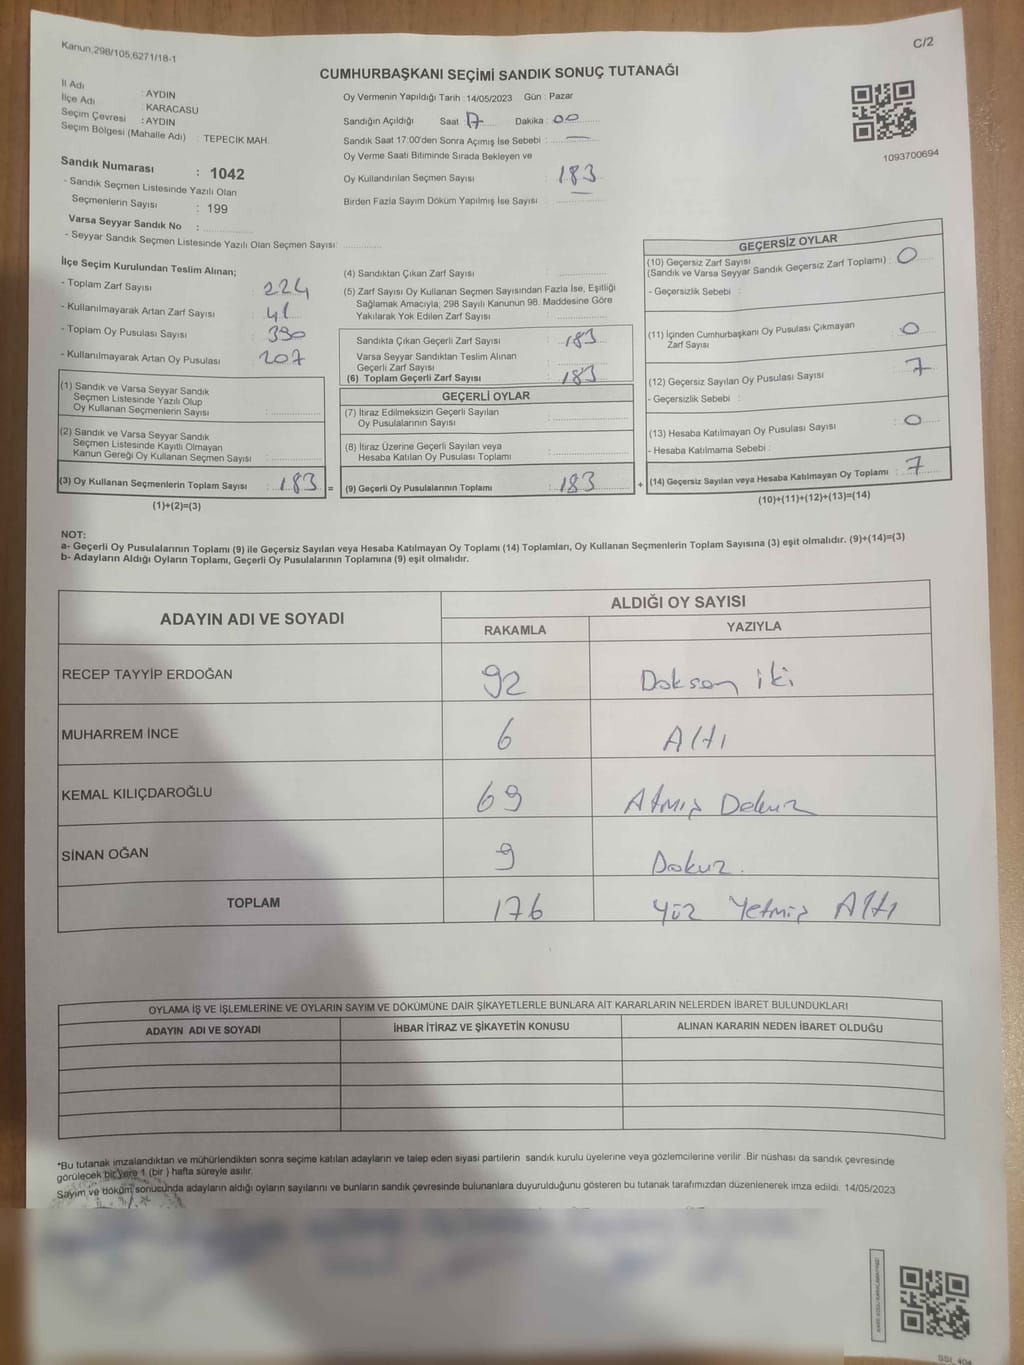 Kanun,298/105;6271/18-1
C/2
CUMHURBAŞKANI SEÇİMİ SANDIK SONUÇ TUTANAĞI
İl Adı : AYDIN
İlçe Adı : KARACASU
Seçim Çevresi : AYDIN
Seçim Bölgesi (Mahalle Adı) : TEPECİK MAH.
Sandık Numarası : 1042
- Sandık Seçmen Listesinde Yazılı Olan
Seçmenlerin Sayısı : 199
Varsa Seyyar Sandık No :
- Seyyar Sandık Seçmen Listesinde Yazılı Olan Seçmen Sayısı:
Oy Vermenin Yapıldığı Tarih :14/05/2023 Gün : Pazar
Sandığın Açıldığı Saat : 17 Dakika : 00
Sandık Saat 17:00'den Sonra Açımış İse Sebebi : —
Oy Verme Saati Bitiminde Sırada Bekleyen ve
Oy Kullandırılan Seçmen Sayısı : 183
Birden Fazla Sayım Döküm Yapılmış İse Sayısı :
1093700694
İlçe Seçim Kurulundan Teslim Alınan;
- Toplam Zarf Sayısı : 224
- Kullanılmayarak Artan Zarf Sayısı : 41
- Toplam Oy Pusulası Sayısı : 390
- Kullanılmayarak Artan Oy Pusulası : 207
(1) Sandık ve Varsa Seyyar Sandık
Seçmen Listesinde Yazılı Olup
Oy Kullanan Seçmenlerin Sayısı :
(2) Sandık ve Varsa Seyyar Sandık
Seçmen Listesinde Kayıtlı Olmayan
Kanun Gereği Oy Kullanan Seçmen Sayısı :
(3) Oy Kullanan Seçmenlerin Toplam Sayısı : 183 =
(1)+(2)=(3)
(4) Sandıktan Çıkan Zarf Sayısı :
(5) Zarf Sayısı Oy Kullanan Seçmen Sayısından Fazla İse, Eşitliği
Sağlamak Amacıyla, 298 Sayılı Kanunun 98. Maddesine Göre
Yakılarak Yok Edilen Zarf Sayısı :
Sandıkta Çıkan Geçerli Zarf Sayısı : 183
Varsa Seyyar Sandıktan Teslim Alınan
Geçerli Zarf Sayısı :
(6) Toplam Geçerli Zarf Sayısı : 183
GEÇERLİ OYLAR
(7) İtiraz Edilmeksizin Geçerli Sayılan
Oy Pusulalarının Sayısı :
(8) İtiraz Üzerine Geçerli Sayılan veya
Hesaba Katılan Oy Pusulası Toplamı :
(9) Geçerli Oy Pusulalarının Toplamı : 183 +
GEÇERSİZ OYLAR
(10) Geçersiz Zarf Sayısı
(Sandık ve Varsa Seyyar Sandık Geçersiz Zarf Toplamı) : 0
- Geçersizlik Sebebi :
(11) İçinden Cumhurbaşkanı Oy Pusulası Çıkmayan
Zarf Sayısı : 0
(12) Geçersiz Sayılan Oy Pusulası Sayısı : 7
- Geçersizlik Sebebi :
(13) Hesaba Katılmayan Oy Pusulası Sayısı : 0
- Hesaba Katılmama Sebebi :
(14) Geçersiz Sayılan veya Hesaba Katılmayan Oy Toplamı : 7
(10)+(11)+(12)+(13)=(14)
NOT:
a- Geçerli Oy Pusulalarının Toplamı (9) ile Geçersiz Sayılan veya Hesaba Katılmayan Oy Toplamı (14) Toplamları, Oy Kullanan Seçmenlerin Toplam Sayısına (3) eşit olmalıdır. (9)+(14)=(3)
b- Adayların Aldığı Oyların Toplamı, Geçerli Oy Pusulalarının Toplamına (9) eşit olmalıdır.
ADAYIN ADI VE SOYADI
ALDIĞI OY SAYISI
RAKAMLA YAZIYLA
RECEP TAYYİP ERDOĞAN 92 Doksan iki
MUHARREM İNCE 6 Altı
KEMAL KILIÇDAROĞLU 69 Atmış Dokuz
SİNAN OĞAN 9 Dokuz.
TOPLAM 176 Yüz Yetmiş Altı
OYLAMA İŞ VE İŞLEMLERİNE VE OYLARIN SAYIM VE DÖKÜMÜNE DAİR ŞİKAYETLERLE BUNLARA AİT KARARLARIN NELERDEN İBARET BULUNDUKLARI
ADAYIN ADI VE SOYADI İHBAR İTİRAZ VE ŞİKAYETİN KONUSU ALINAN KARARIN NEDEN İBARET OLDUĞU
*Bu tutanak imzalandıktan ve mühürlendikten sonra seçime katılan adayların ve talep eden siyasi partilerin sandık kurulu üyelerine veya gözlemcilerine verilir .Bir nüshası da sandık çevresinde
görülecek bir yere 1 (bir ) hafta süreyle asılır.
Sayım ve döküm sonucunda adayların aldığı oyların sayılarını ve bunların sandık çevresinde bulunanlara duyurulduğunu gösteren bu tutanak tarafımızdan düzenlenerek imza edildi. 14/05/2023